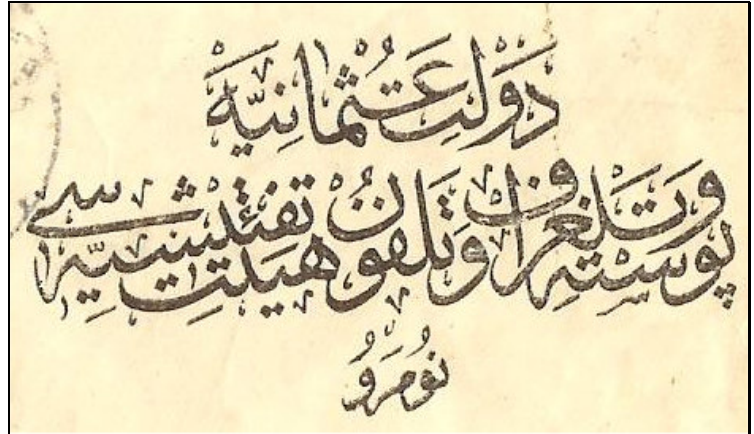 دَوْلَتِ عُثْمَانِيَّه
پوسته وتلغراف وتلفون هيئت تفتيشيه سى
نومرو